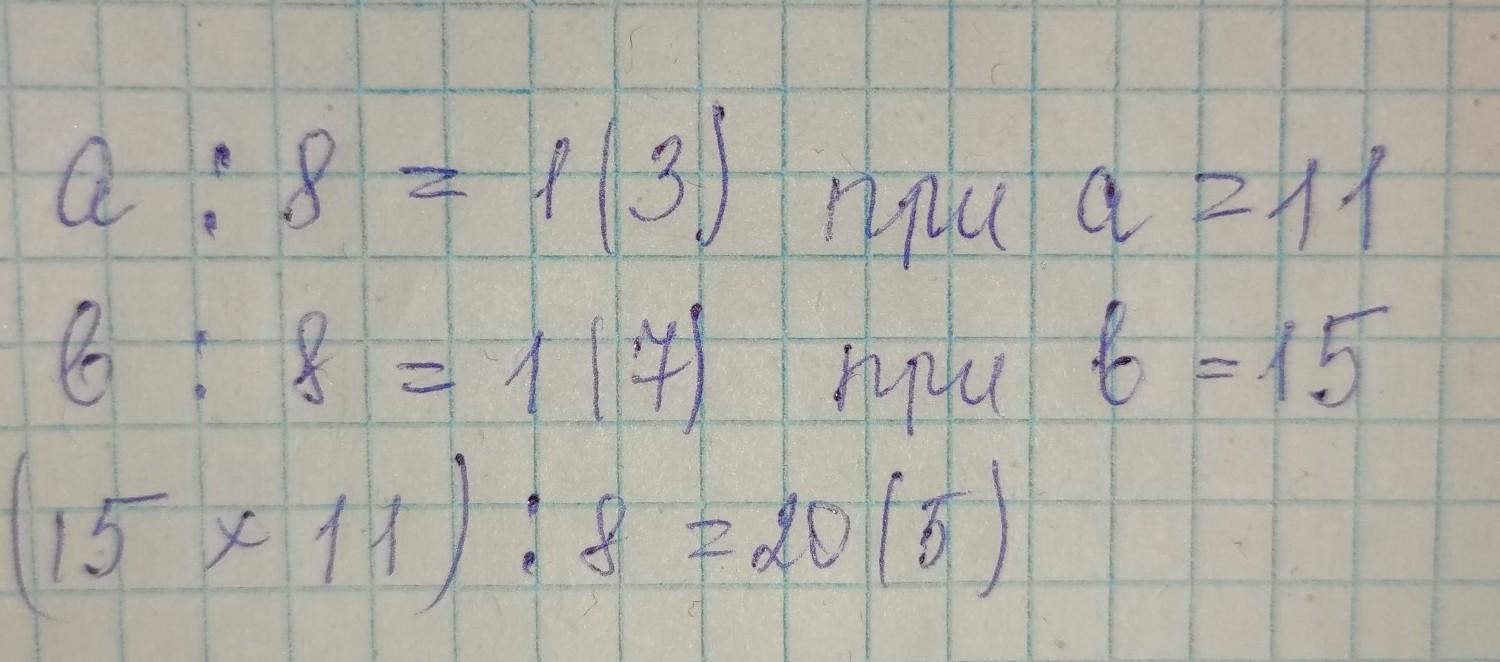 a : 8 = 1(3) при a = 11
в : 8 = 1(7) при в = 15
(15 × 11) : 8 = 20(5)